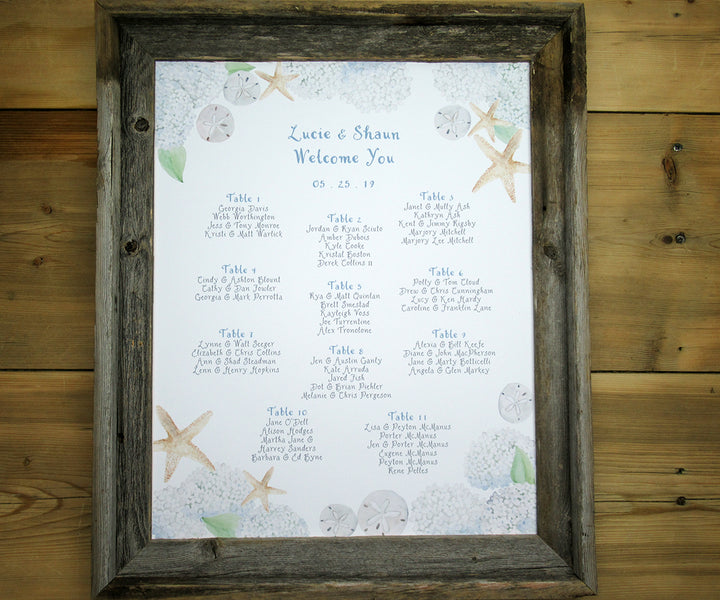 Lucie & Shaun
Welcome You
05 . 25 . 19
Table 1
Georgia Davis
Webb Worthington
Jess & Tony Monroe
Kristi & Matt Warlick
Table 2
Jordan & Ryan Sciuto
Amber Dubois
Kyle Cooke
Kristal Boston
Derek Collins 11
Table 3
Janet & Mully Ash
Kathryn Ash
Kent & Jimmy Rigsby
Marjory Mitchell
Marjory Lee Mitchell
Table 4
Cindy & Ashton Blount
Cathy & Dan Jowler
Georgia & Mark Perrotta
Table 5
Kya & Matt Quinlan
Brett Smestad
Kayleigh Voss
Joe Turrentine
Alex Tronolone
Table 6
Polly & Tom Cloud
Drew & Chris Cunningham
Lucy & Ken Hardy
Caroline & Franklin Lane
Table 7
Lynne & Walt Seeger
Elizabeth & Chris Collins
Ann & Shad Steadman
Lenn & Henry Hopkins
Table 8
Jen & Austin Ganty
Kate Arruda
Jared Fish
Dot & Brian Piehler
Melanie & Chris Pergeson
Table 9
Alexia & Bill Keefe
Diane & John MacPherson
Jane & Marty Botticelli
Angela & Glen Markey
Table 10
Jane O'Dell
Alison Hodges
Martha Jane &
Harvey Sanders
Barbara & Ed Byne
Table 11
Lisa & Peyton McManus
Porter McManus
Jen & Porter McManus
Eugene McManus
Peyton McManus
Rene Pelles